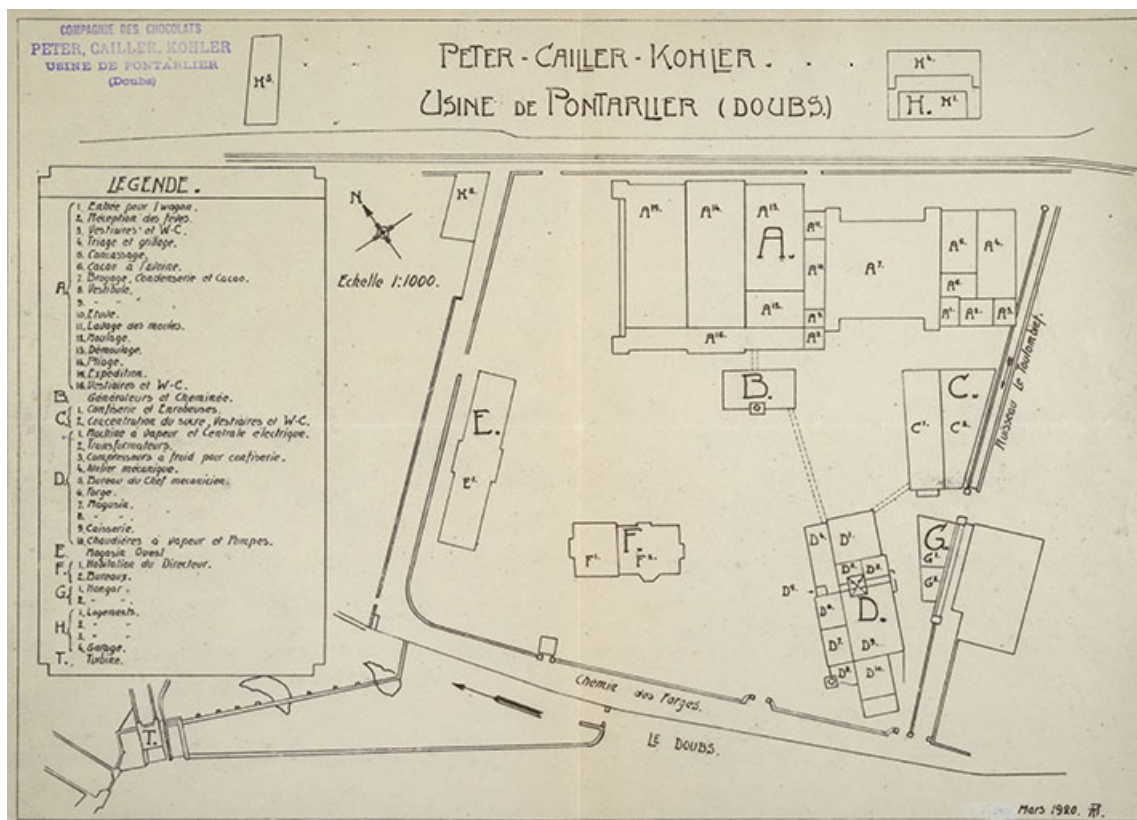 COMPAGNIE DES CHOCOLATS
PETER, CAILLER, KOHLER
USINE DE PONTARLIER
(Doubs)
PETER-CAILLER-KOHLER.
USINE DE PONTARLIER (DOUBS.)
H³.
H⁴.
H. H¹.
LEGENDE.
A.
1. Entrée pour 1 wagon.
2. Réception des fèves.
3. Vestiaires et W-C.
4. Triage et grillage.
5. Concassage.
6. Cacao à l'avoine.
7. Broyage, Condenserie et Cacao.
8. Vestibule.
9. - - "
10. Etuve.
11. Lavage des moules.
12. Moulage.
13. Démoulage.
14. Pliage.
15. Expédition.
16. Vestiaires et W-C.
B. Générateurs et Cheminée.
C.
1. Confiserie et Enrobeuses.
2. Concentration du sucre, Vestiaires et W-C.
D.
1. Machine à vapeur et Centrale electrique.
2. Transformateurs.
3. Compresseurs à froid pour confiserie.
4. Atelier mécanique.
5. Bureau du Chef mécanicien.
6. Forge.
7. Magasin.
8. - " -
9. Caisserie.
10. Chaudières à vapeur et Pompes.
E. Magasin Ouest
F.
1. Habitation du Directeur.
2. Bureaux.
G.
1. Hangar.
2. - "
H.
1. Logements.
2. - "
3. - "
4. Garage.
T. Turbine.
N
Echelle 1:1000.
H².
A¹⁵.
A¹⁴.
A¹³.
A.
A¹².
A¹⁶.
A¹¹.
A¹⁰.
A⁹.
A⁸.
A⁷.
A⁵.
A⁴.
A⁶.
A¹.
A².
A³.
B.
C.
C¹.
C².
Ruisseau Le Toulombief.
E.
E¹.
F.
F¹.
F².
D⁴.
D¹.
D³.
D².
D⁵.
D⁶.
D.
D⁷.
D⁹.
D⁸.
D¹⁰.
G.
G¹.
G².
Chemin des Forges.
LE DOUBS.
T.
Mars 1920.